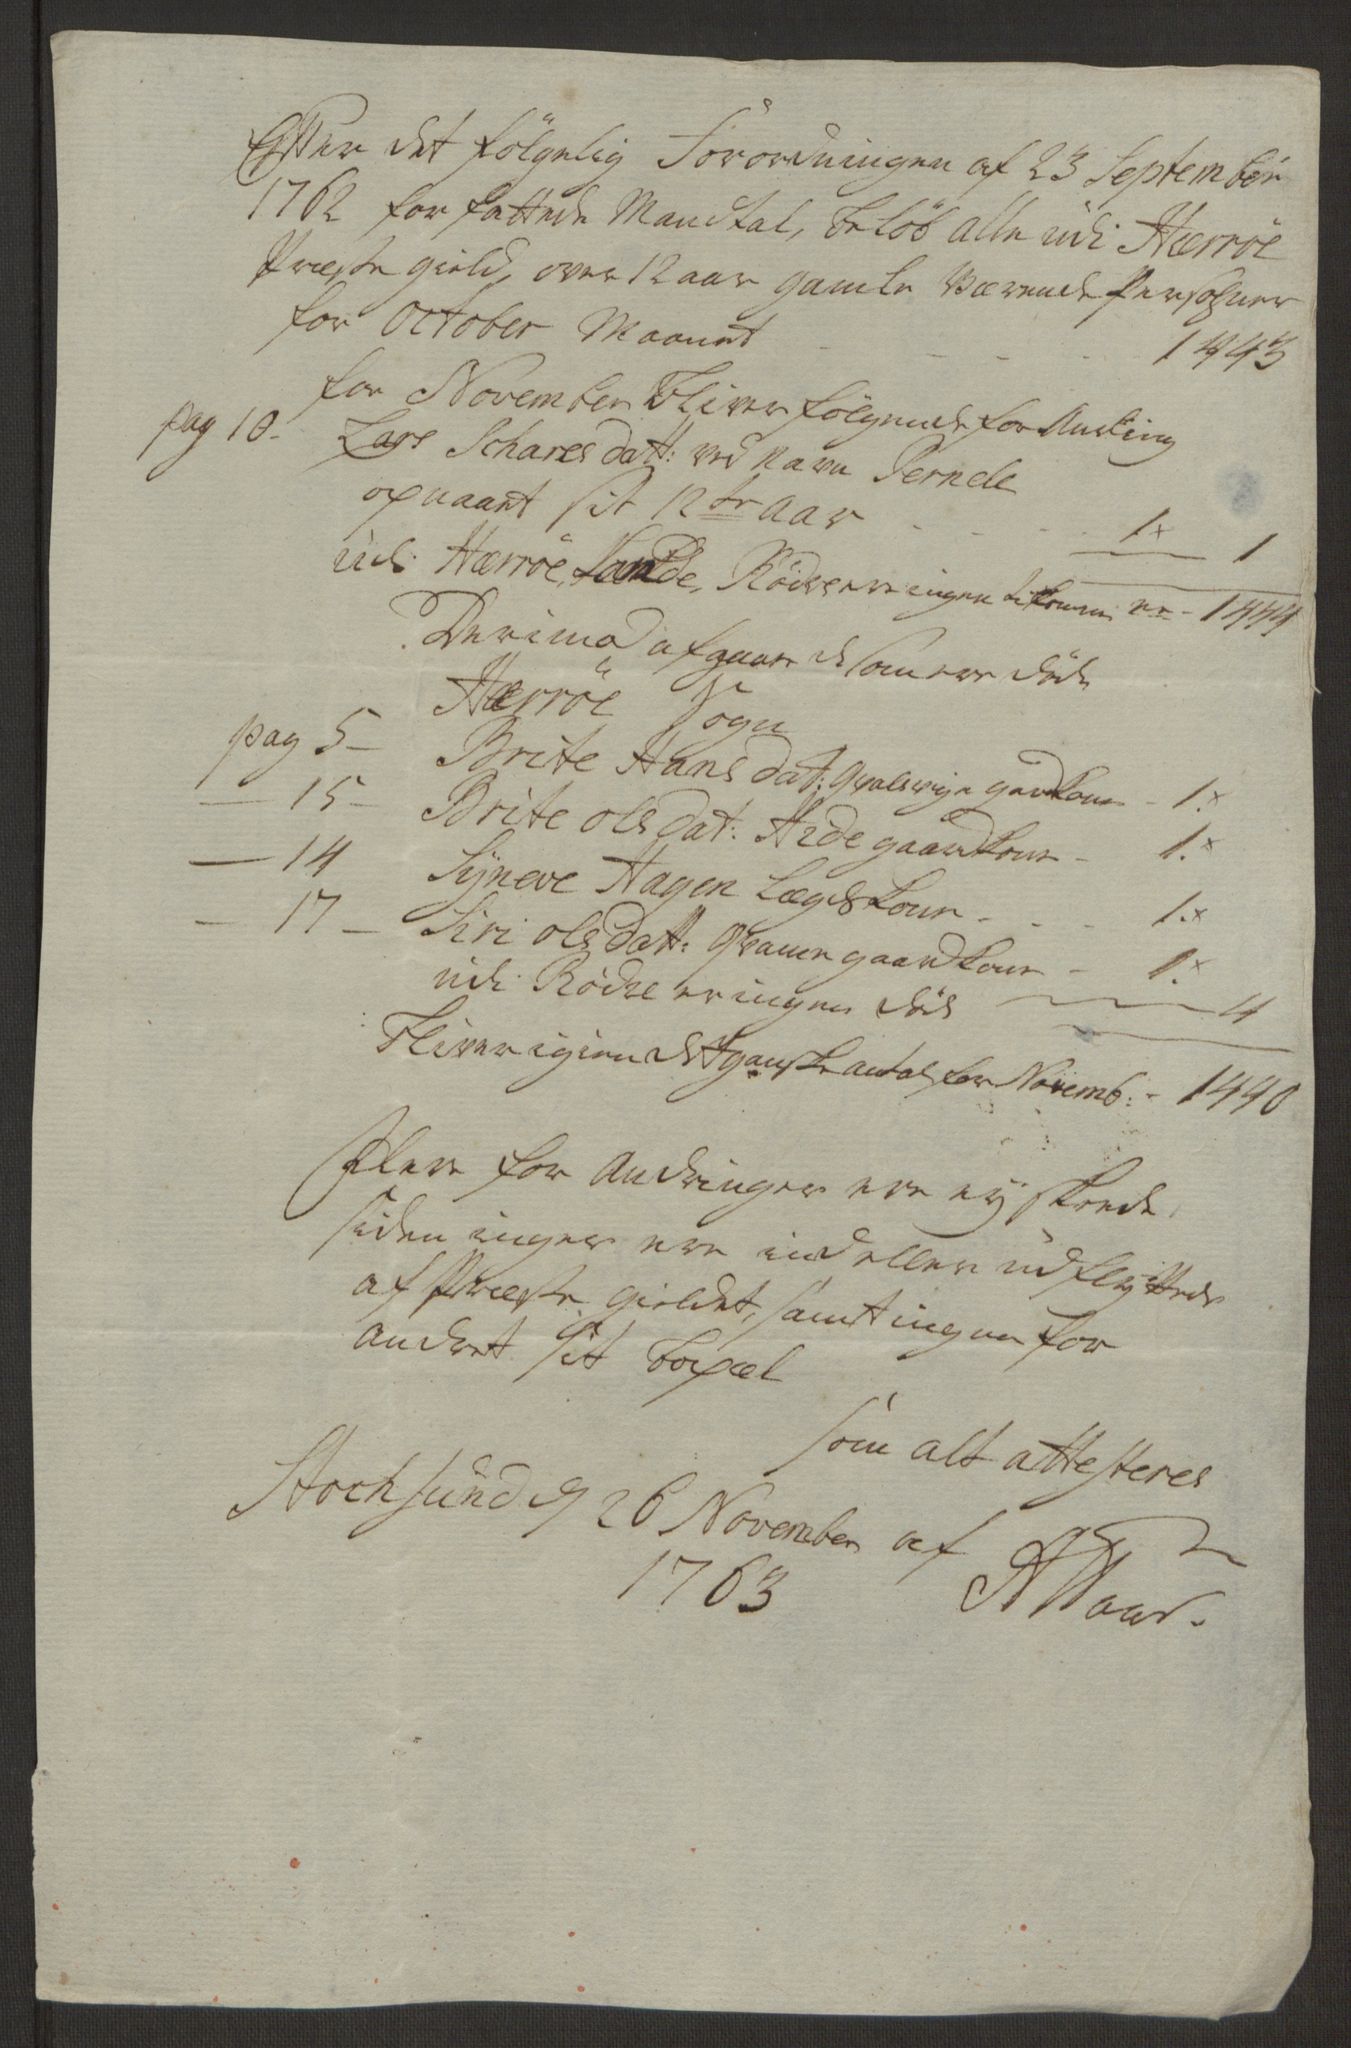 Efter det fölgelig Forordningen af 23 September
1762 for fattede Mandtal, belöb alle udi Herröe
Præste gield, over 12 aar gamle Værende Persohner
for October Maanet - - - - 1443
for November bliver fölgende for Andring
pag 10. Lars Schares dat: ved Navn Pernele
opnaaet sit 12te Aar - - - 1x 1
udi Herröe, Sande, Rödse er ingen tilkommen er - 1444
Derimod afgaar de som ere döde
Herröe Sogn
pag 5 - Brite Hans dat: Qvalsvig gaardkone - 1.x
— 15 - Brite ols dat: Ards gaardkone - 1.x
— 14 Syneve Hagen Lægdskone - - - 1.x
— 17 - Siri ols datt: gaardkone - 1.x
udi Rödse er ingen död 4
bliver igien det ganske antal for Novemb: - 1440
Flere for Andringer ere ey skeede,
siden inger ere ind eller udflyttede
af Præste gieldet, samt ingen for
andret sit bopæl
som alt attesteres
Stochsund d 26 November af
1763